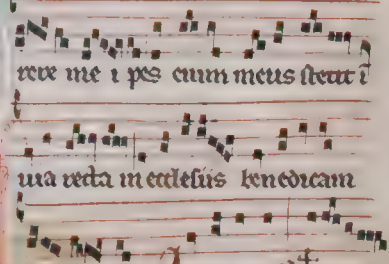 rere me i pes enim meus stetit ī
uia recta in ecclesiis benedicam